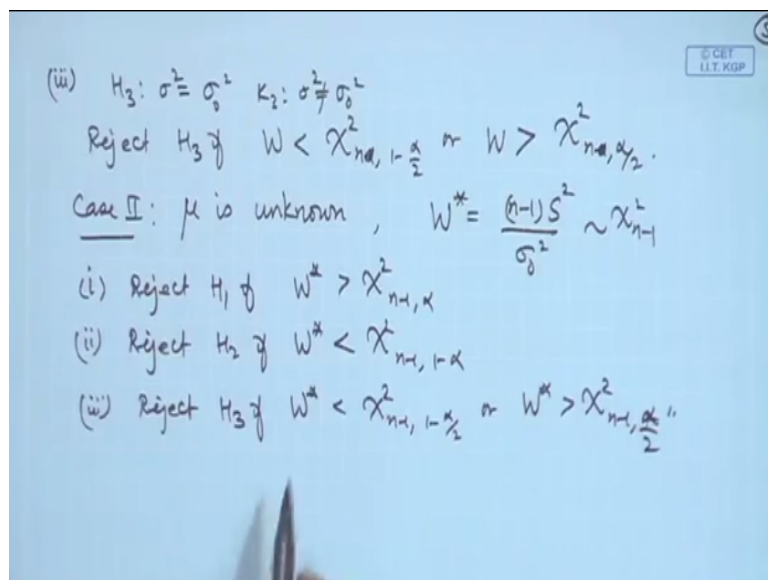 (5
© CET
I.I.T. KGP
(iii) H₃: σ² = σ₀² K₃: σ² ≠ σ₀²
Reject H₃ if W < χ²ₙ, 1-α/2 or W > χ²ₙ, α/2.
Case II: μ is unknown, W* = (n-1)S²/σ₀² ~ χ²ₙ₋₁
(i) Reject H₁ if W* > χ²ₙ₋₁, α
(ii) Reject H₂ if W* < χ²ₙ₋₁, 1-α
(iii) Reject H₃ if W* < χ²ₙ₋₁, 1-α/2 or W* > χ²ₙ₋₁, α/2 "